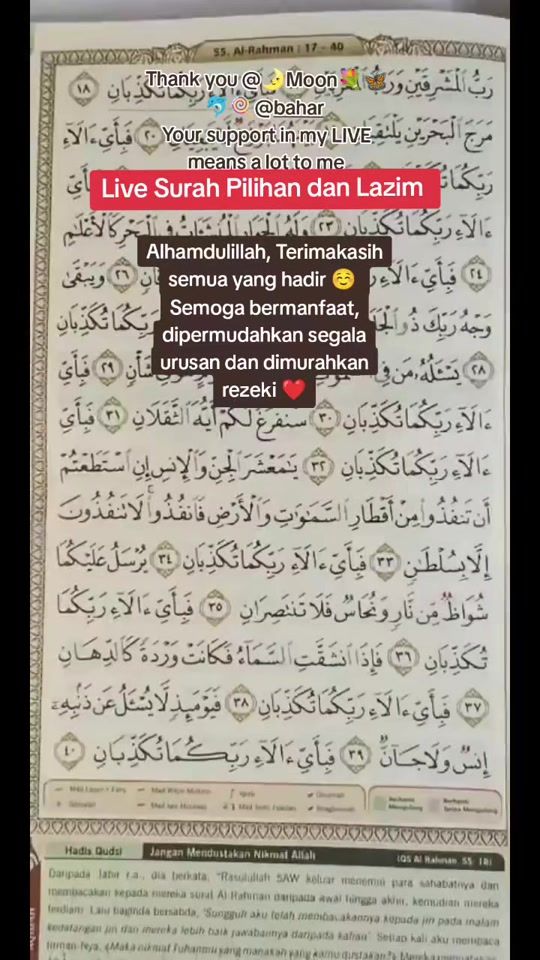 55. Al-Rahman : 17 - 40
Thank you @🌛Moon💐🦋
🐬🍥 @bahar
Your support in my LIVE
means a lot to me
Live Surah Pilihan dan Lazim
Alhamdulillah, Terimakasih
semua yang hadir ☺️
Semoga bermanfaat,
dipermudahkan segala
urusan dan dimurahkan
rezeki ❤️
رَبُّ الْمَشْرِقَيْنِ وَرَبُّ
رَبِّكُمَا تُكَذِّبَانِ ١٨
مَرَجَ الْبَحْرَيْنِ يَلْتَقِيَا
٢٠ فَبِأَيِّ ءَالَآءِ
ءَالَآءِ رَبِّكُمَا تُكَذِّبَانِ ٢٣ وَلَهُ الْجَوَارِ الْمُنشَئَاتُ فِي الْبَحْرِ كَالْأَعْلَٰمِ
٢٤ فَبِأَيِّ ءَالَآءِ
٢٦ وَيَبْقَىٰ
وَجْهُ رَبِّكَ ذُو الْجَ
رَبِّكُمَا تُكَذِّبَانِ
٢٨ يَسْـَٔلُهُۥ مَن فِي
شَأْنٍ ٢٩ فَبِأَيِّ
ءَالَآءِ رَبِّكُمَا تُكَذِّبَانِ ٣٠ سَنَفْرُغُ لَكُمْ أَيُّهَ الثَّقَلَانِ ٣١ فَبِأَيِّ
ءَالَآءِ رَبِّكُمَا تُكَذِّبَانِ ٣٢ يَٰمَعْشَرَ الْجِنِّ وَالْإِنسِ إِنِ اسْتَطَعْتُمْ
أَن تَنفُذُوا۟ مِنْ أَقْطَارِ السَّمَٰوَٰتِ وَالْأَرْضِ فَانفُذُوا۟ ۚ لَا تَنفُذُونَ
إِلَّا بِسُلْطَٰنٍ ٣٣ فَبِأَيِّ ءَالَآءِ رَبِّكُمَا تُكَذِّبَانِ ٣٤ يُرْسَلُ عَلَيْكُمَا
شُوَاظٌ مِّن نَّارٍ وَنُحَاسٌ فَلَا تَنتَصِرَانِ ٣٥ فَبِأَيِّ ءَالَآءِ رَبِّكُمَا
تُكَذِّبَانِ ٣٦ فَإِذَا انشَقَّتِ السَّمَآءُ فَكَانَتْ وَرْدَةً كَالدِّهَانِ
٣٧ فَبِأَيِّ ءَالَآءِ رَبِّكُمَا تُكَذِّبَانِ ٣٨ فَيَوْمَئِذٍ لَّا يُسْـَٔلُ عَن ذَنۢبِهِۦٓ
إِنسٌ وَلَا جَآنٌّ ٣٩ فَبِأَيِّ ءَالَآءِ رَبِّكُمَا تُكَذِّبَانِ ٤٠
Hadis Qudsi Jangan Mendustakan Nikmat Allah (QS Al Rahman, 55: 18)
Daripada Jabir r.a., dia berkata, "Rasulullah SAW keluar menemui para sahabatnya dan
membacakan kepada mereka surat Al-Rahman daripada awal hingga akhir, kemudian mereka
terdiam. Lalu baginda bersabda, 'Sungguh aku telah membacakannya kepada jin pada malam
kedatangan jin dan mereka lebih baik jawabannya daripada kalian. Setiap kali aku membaca
firman-Nya, (Maka nikmat Tuhanmu yang manakah yang kamu dustakan?)